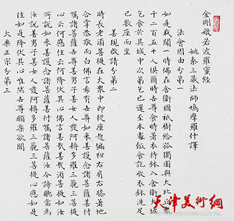 金剛般若波羅蜜經
姚秦三藏法師鳩摩羅什譯
法會因由分第一
如是我聞一時佛在舍衛國祇樹給孤獨園與大比丘眾
千二百五十人俱爾時世尊食時著衣持鉢入舍衛大城
乞食於其城中次第乞已還至本處飯食訖收衣鉢洗足
已敷座而坐
善現啟請分第二
時長老須菩提在大眾中即從座起偏袒右肩右膝著地
合掌恭敬而白佛言希有世尊如來善護念諸菩薩善付
囑諸菩薩世尊善男子善女人發阿耨多羅三藐三菩提
心云何應住云何降伏其心佛言善哉善哉須菩提如汝
所說如來善護念諸菩薩善付囑諸菩薩汝今諦聽當為
汝說善男子善女人發阿耨多羅三藐三菩提心應如是
住如是降伏其心唯然世尊願樂欲聞
大乘正宗分第三
天津美術網